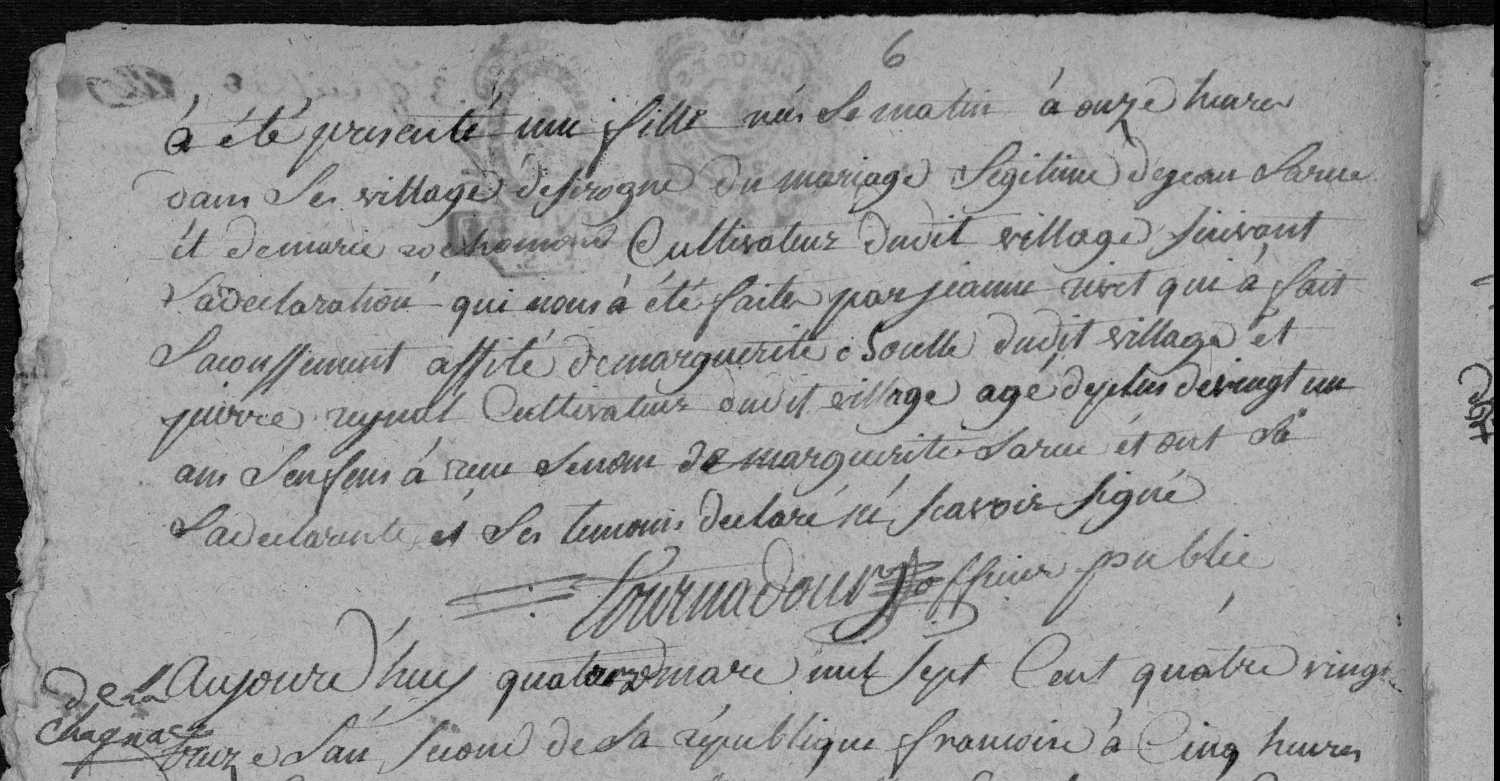 6
à été presenté une fille née le matin à onze heures
dans les village du mariage legitime de jean Larue
et de marie rochomond Cultivateur dudit village suivant
la declaration qui nous à été faite par jeanne rivet qui à fait
lacoussement assité de marguerite dudit village et
pierre Cultivateur dudit village agé de plus de vingt un
ans lenfens à reçue le nom de marguerite Larue et ont
la declarante et les temoins declaré né scavoir signé
Tournadour officier public
Aujourd'huy quatorze mars mil sept Cent quatre vingt
de la
Chagnac
treize lan second de la république francoise à Cinq heures